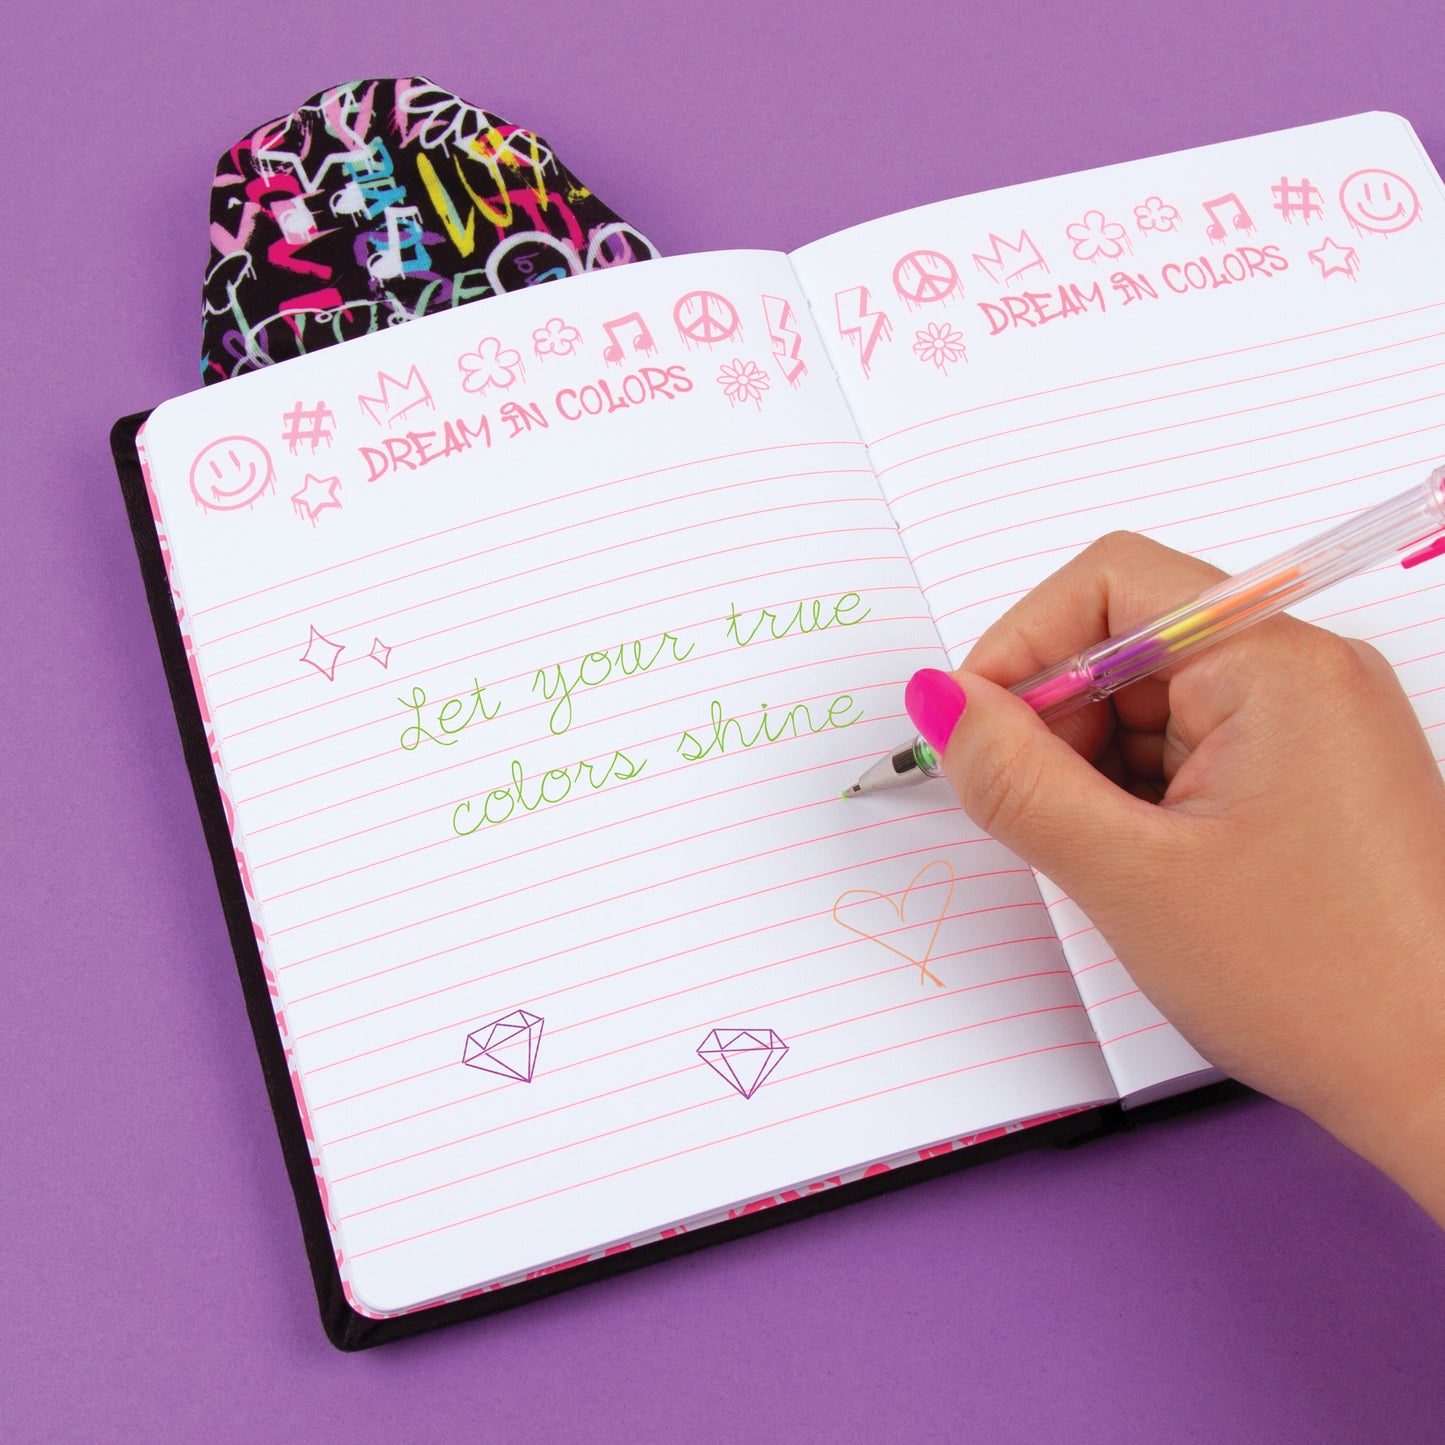 DREAM IN COLORS
DREAM IN COLORS
Let your true
colors shine